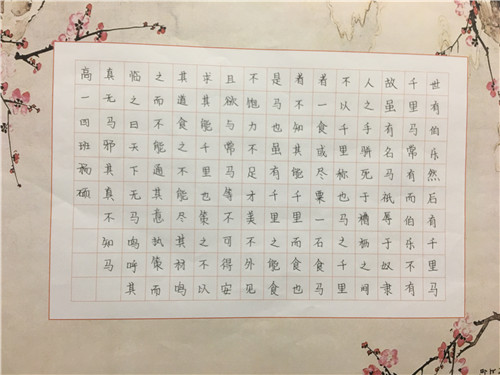 世有伯乐然后有千里马
千里马常有而伯乐不有
故虽有名马祇辱于奴隶
人之手骈死于槽枥之间
不以千里称也马之千里
着一食或尽粟一石食马
着不知其能千里而食也
是马也虽有千里之能食
不饱力不足才美不外见
且欲与常马等不可得安
求其能千里也策之不以
其道食之不能尽其材鸣
之而不能通其意执策而
临之曰天下无马鸣呼其
真无马邪其真不知马
高一四班杨硕